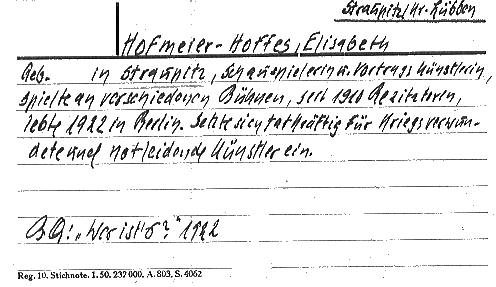 Straupitz/Kr. Lübben
Hofmeier-Hoffes, Elisabeth
Geb. in Straupitz, Schauspielerin u. Vortragskünstlerin,
spielte an verschiedenen Bühnen, seit 1910 Rezitatorin,
lebte 1922 in Berlin. Setzte sich tatkräftig für Kriegsverwun-
dete und notleidende Künstler ein.
BQ: „Wer ist's?" 1922
Reg. 10. Stichnote. 1. 50. 237 000. A. 803. S. 4062